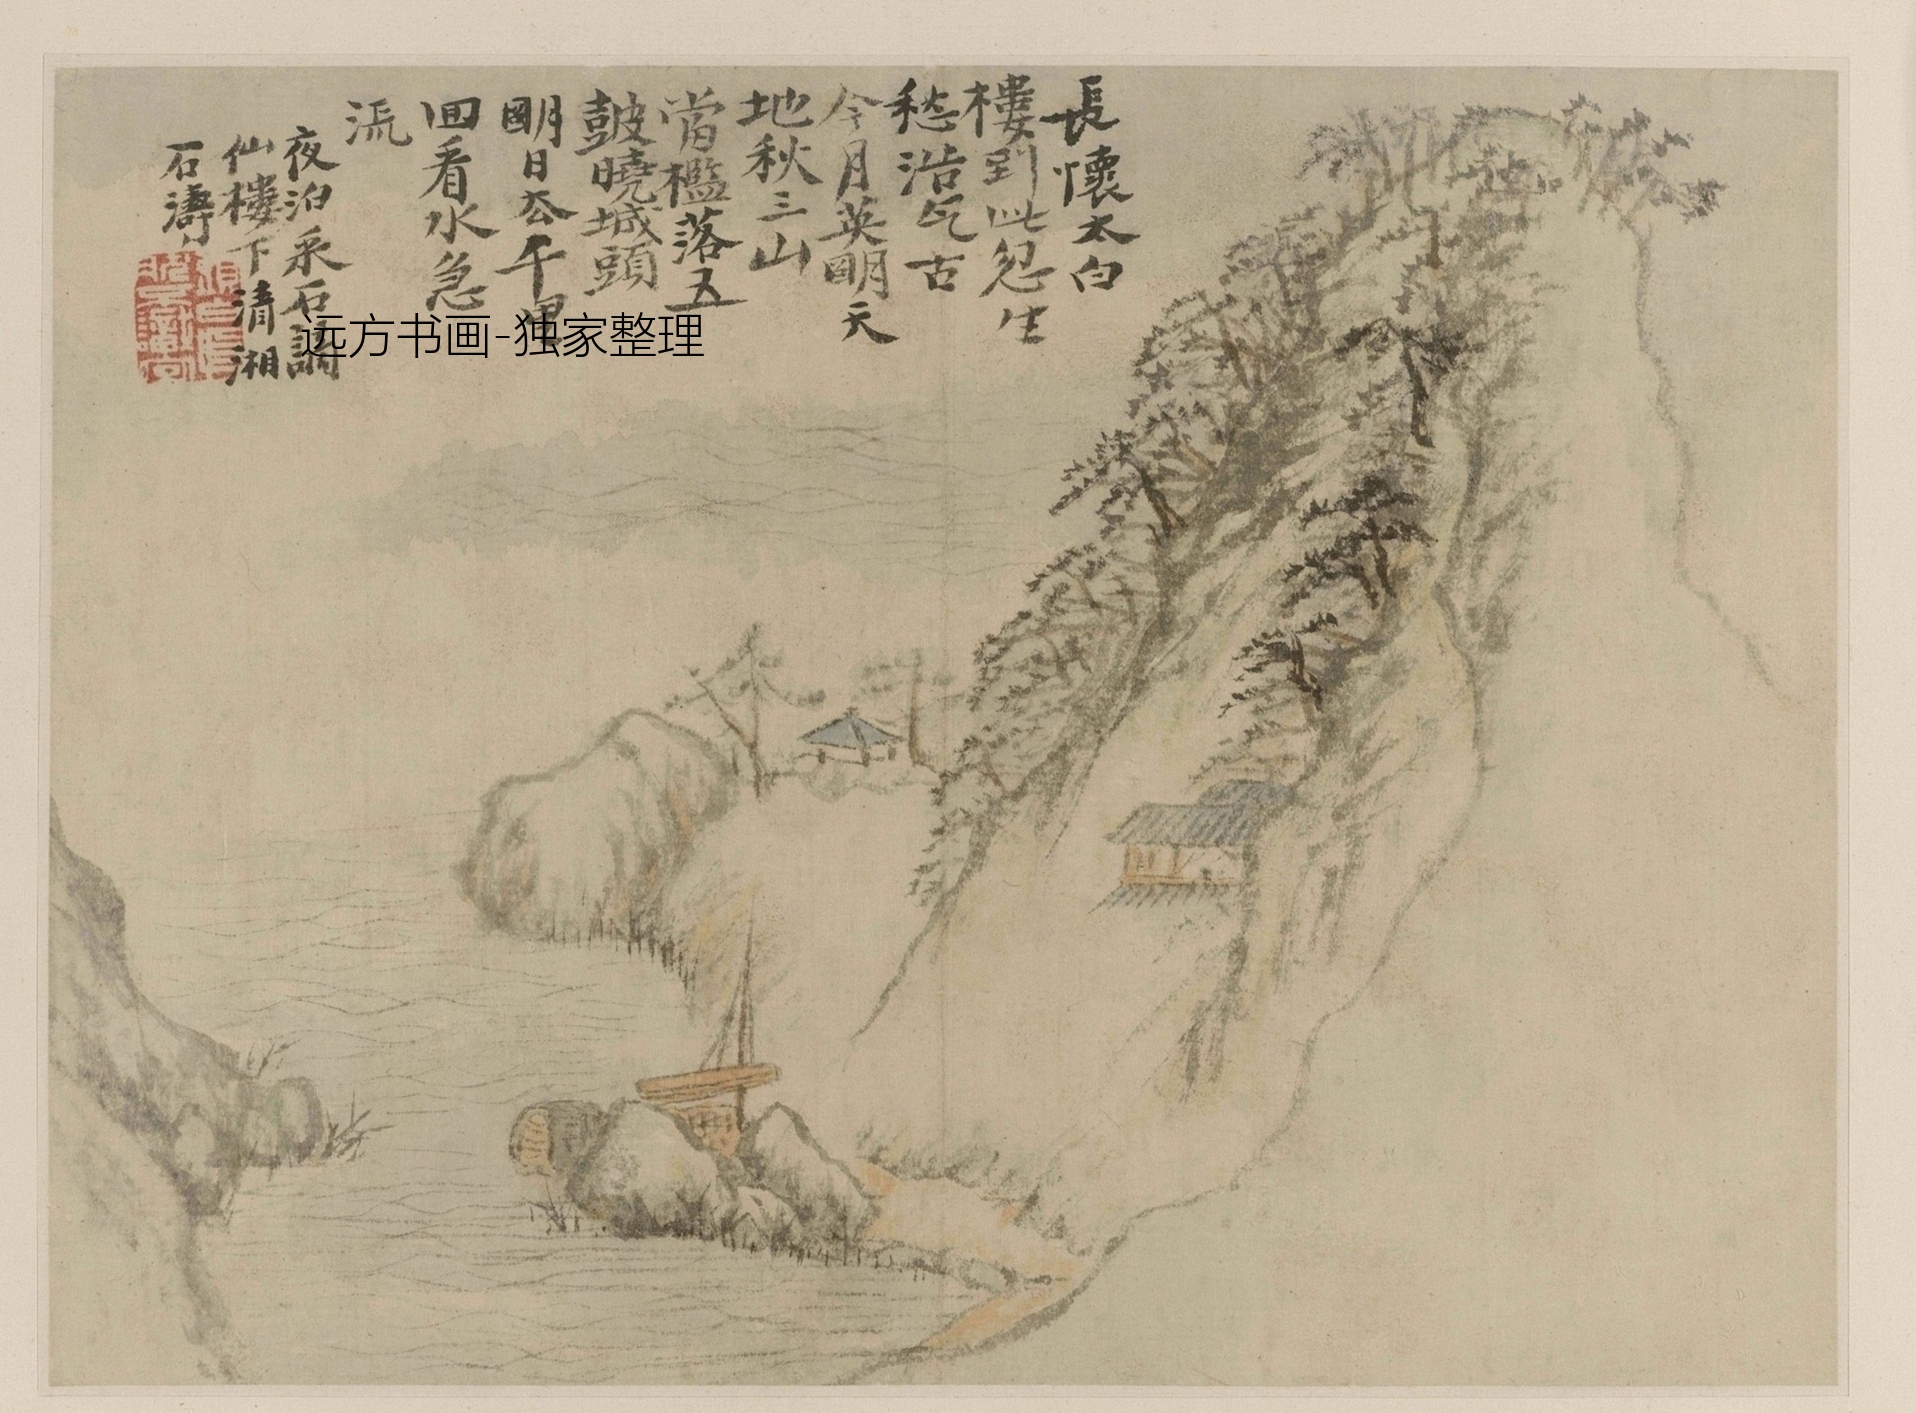 長懷太白
樓到此忽生
愁浩气古
今月英朙天
地秋三山
當檻落五
鼓曉城頭
朙日厺千里
回看水急
流
夜泊采石謫
仙樓下清湘
石濤
远方书画-独家整理